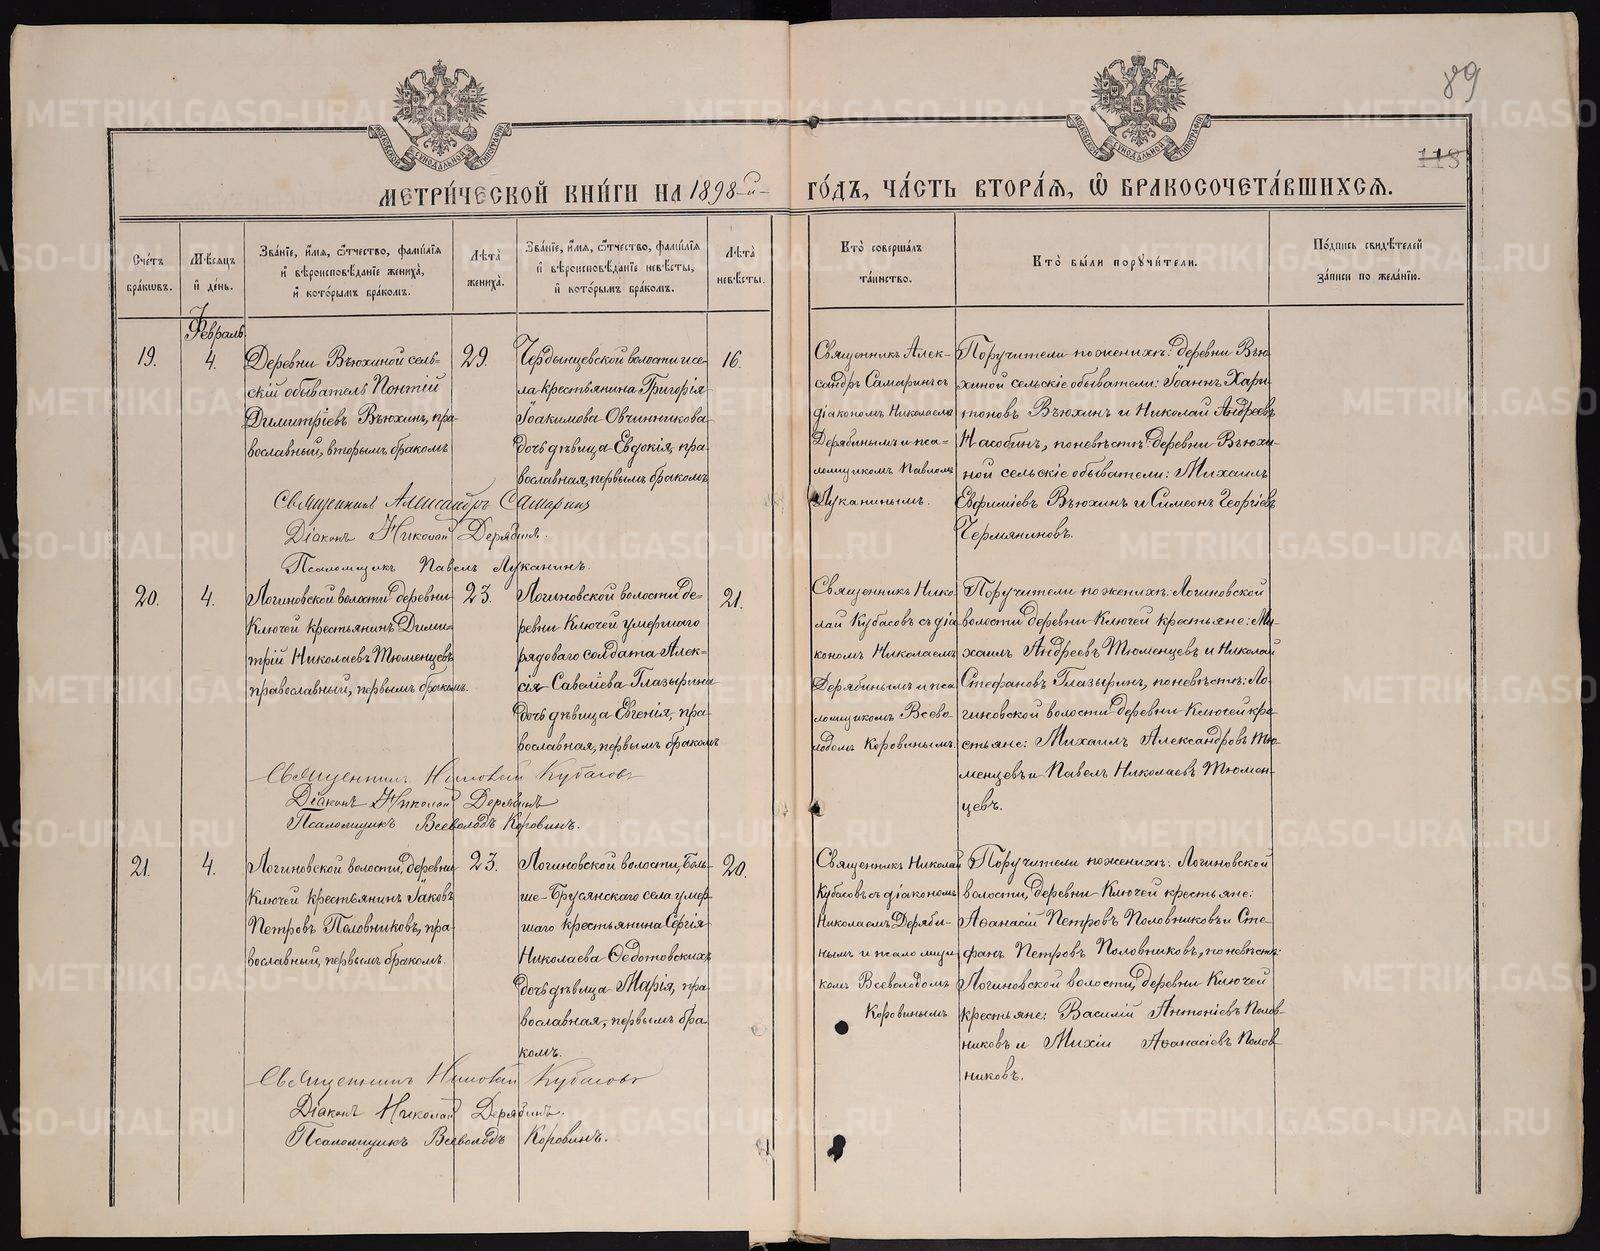 89
118
МОСКОВСКОЙ СѴНОДАЛЬНОЙ ТИПОГРАФІИ
МОСКОВСКОЙ СѴНОДАЛЬНОЙ ТИПОГРАФІИ
МЕТРИ́ЧЕСКОЙ КНИ́ГИ НА 1898-й- ГО́ДЪ, ЧА́СТЬ ВТОРА́Я, Ѡ БРАКОСОЧЕТА́ВШИХСЯ.
Сче́тъ бра́кѡвъ.
Мѣ́сяцъ и де́нь.
Зва́нїе, и́мя, ѻ́тчество, фами́лїя и вѣроисповѣ́данїе жениха̀, и кото́рымъ бра́комъ.
Лѣ́та жениха̀.
Зва́нїе, и́мя, ѻ́тчество, фами́лїя и вѣроисповѣ́данїе невѣ́сты, и кото́рымъ бра́комъ.
Лѣ́та невѣ́сты.
Кто̀ соверша́лъ та́инство.
Кто̀ бы́ли порꙋчи́тели.
По́дпись свидѣ́телей за́писи по жела́нїю.
Февраль.
19.
4.
Деревни Вьюхиной сель-
скій обыватель Понтій
Димитріевъ Вьюхинъ, пра
вославный, вторымъ бракомъ
29.
Чердынцевской волости и се-
ла крестьянина Григорія
Іоакимова Овчинникова
дочь дѣвица Евдокія, пра-
вославная, первымъ бракомъ
16.
Священникъ Алек-
сандръ Самаринъ съ
діакономъ Николаемъ
Дерябинымъ и пса-
ломщикомъ Павломъ
Луканинымъ.
Поручители по женихѣ: деревни Вью-
хиной сельскіе обыватели: Іоаннъ Хари-
тоновъ Вьюхинъ и Николай Андреевъ
Насобинъ, по невѣстѣ: деревни Вьюхи-
ной сельскіе обыватели: Михаилъ
Евфиміевъ Вьюхинъ и Симеонъ Георгіевъ
Чермяниновъ.
Священникъ Александръ Самаринъ
Діаконъ Николай Дерябинъ.
Псаломщикъ Павелъ Луканинъ.
20.
4.
Логиновской волости деревни
Ключей крестьянинъ Дими-
трій Николаевъ Тюменцевъ
православный, первымъ бракомъ.
23.
Логиновской волости де-
ревни Ключей умершаго
рядоваго солдата Алек-
сія Савеліева Глазырина
дочь дѣвица Евгенія, пра-
вославная, первымъ бракомъ
21.
Священникъ Нико-
лай Кубасовъ съ діа-
кономъ Николаемъ
Дерябинымъ и пса
ломщикомъ Всево-
лодомъ Коровинымъ.
Поручители по женихѣ: Логиновской
волости деревни Ключей крестьяне: Ми-
хаилъ Андреевъ Тюменцевъ и Николай
Стефановъ Глазыринъ, по невѣстѣ: Ло-
гиновской волости деревни Ключей кре-
стьяне: Михаилъ Александровъ Тю-
менцевъ и Павелъ Николаевъ Тюмен-
цевъ.
Священникъ Николай Кубасовъ
Діаконъ Николай Дерябинъ
Псаломщикъ Всеволодъ Коровинъ.
21.
4.
Логиновской волости, деревни
Ключей крестьянинъ Іаковъ
Петровъ Половниковъ, пра-
вославный, первымъ бракомъ.
23.
Логиновской волости, Боль-
ше-Брусянскаго села умер-
шаго крестьянина Сергія
Николаева Ѳедотовскихъ
дочь дѣвица Марія, пра-
вославная, первымъ бра-
комъ.
20.
Священникъ Николай
Кубасовъ съ діакономъ
Николаемъ Деряби-
нымъ и псаломщи-
комъ Всеволодомъ
Коровинымъ
Поручители по женихѣ: Логиновской
волости, деревни Ключей крестьяне:
Аѳанасій Петровъ Половниковъ и Сте-
фанъ Петровъ Половниковъ, по невѣстѣ:
Логиновской волости, деревни Ключей
крестьяне: Василій Антоніевъ Полов-
никовъ и Михіи Аѳанасіевъ Полов
никовъ.
Священникъ Николай Кубасовъ
Діаконъ Николай Дерябинъ.
Псаломщикъ Всеволодъ Коровинъ.
METRIKI.GASO-URAL.RU